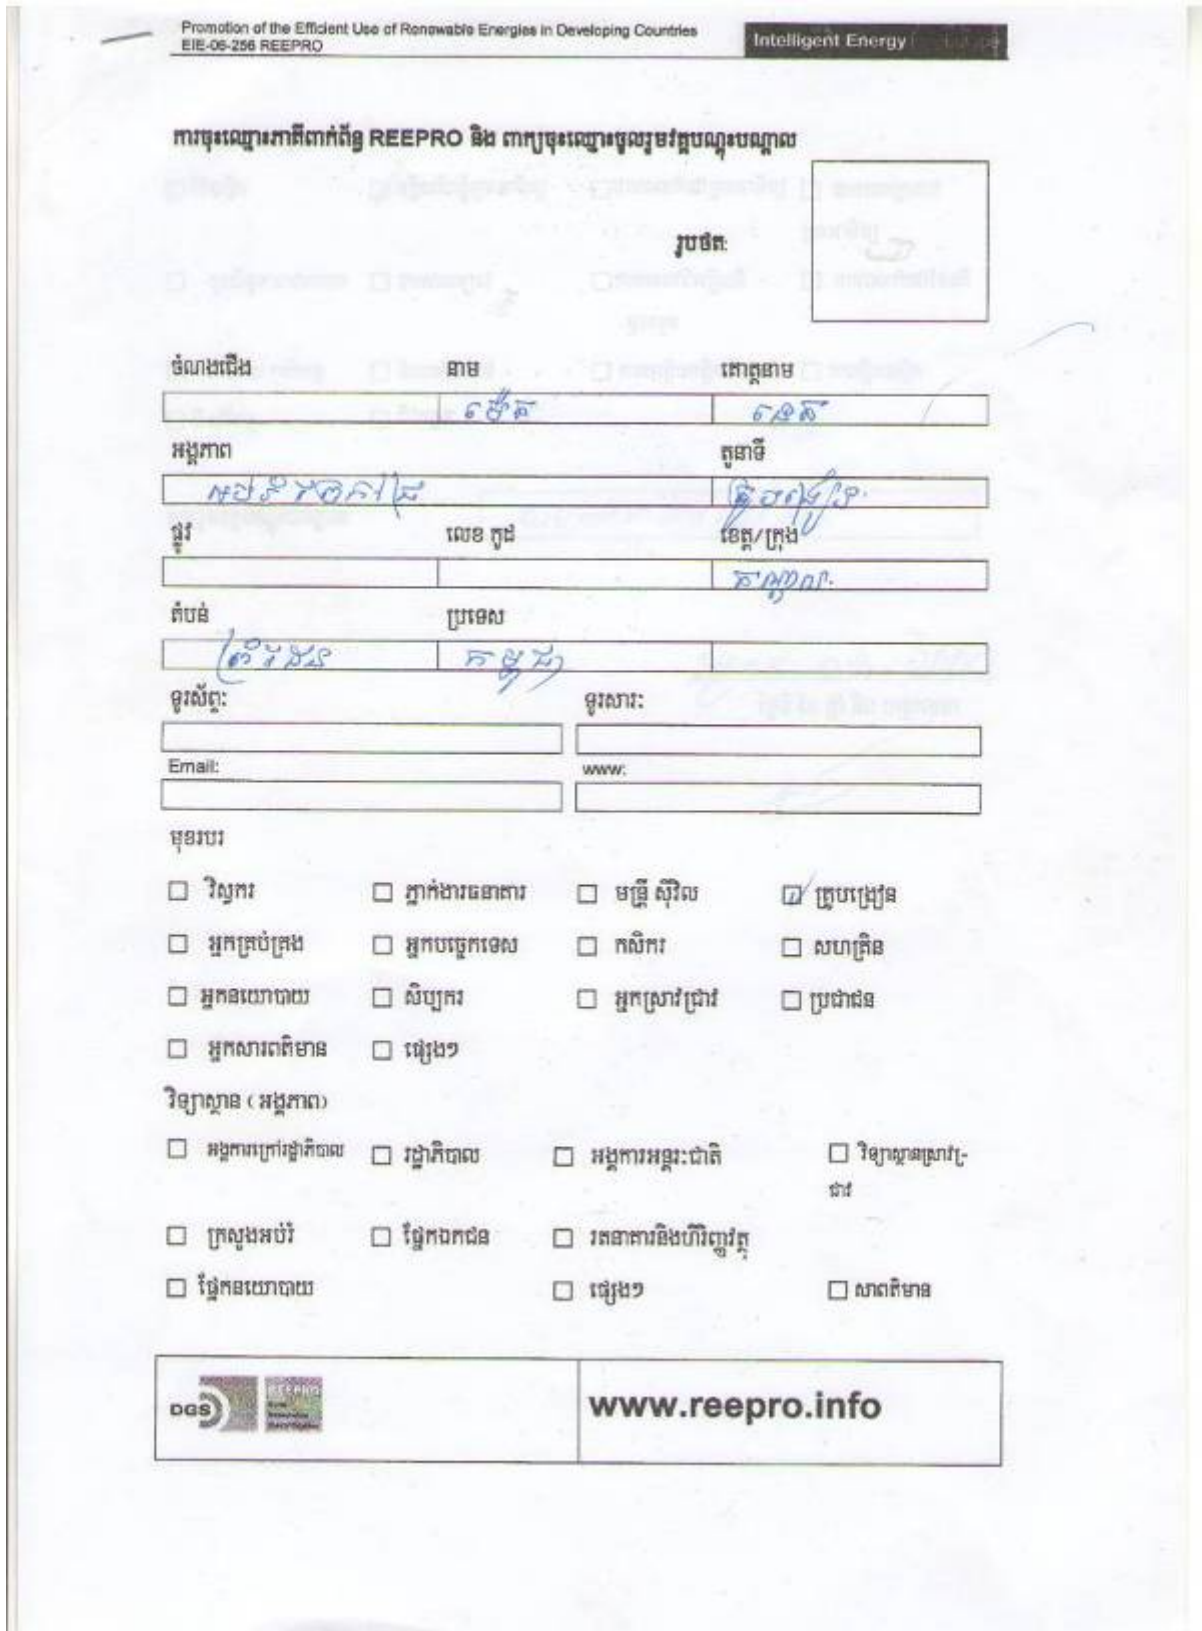 Promotion of the Efficient Use of Renewable Energies in Developing Countries
EIE-06-256 REEPRO
Intelligent Energy
ការចុះឈ្មោះភាគីពាក់ព័ន្ធ REEPRO និង ពាក្យចុះឈ្មោះចូលរួមវគ្គបណ្តុះបណ្តាល
រូបថត:
ចំណងជើង នាម គោត្តនាម
ម៉េត នេត
អង្គភាព តួនាទី
គ្រូបង្រៀន
ផ្លូវ លេខ កូដ ខេត្ត/ក្រុង
កណ្តាល
តំបន់ ប្រទេស
ព្រំដែន កម្ពុជា
ទូរស័ព្ទ: ទូរសារ:
Email: www:
មុខរបរ
☐ វិស្វករ ☐ ភ្នាក់ងារធនាគារ ☐ មន្ត្រី ស៊ីវិល ☑ គ្រូបង្រៀន
☐ អ្នកគ្រប់គ្រង ☐ អ្នកបច្ចេកទេស ☐ កសិករ ☐ សហគ្រិន
☐ អ្នកនយោបាយ ☐ សិប្បករ ☐ អ្នកស្រាវជ្រាវ ☐ ប្រជាជន
☐ អ្នកសារពត៌មាន ☐ ផ្សេងៗ
វិទ្យាស្ថាន ( អង្គភាព)
☐ អង្គការក្រៅរដ្ឋាភិបាល ☐ រដ្ឋាភិបាល ☐ អង្គការអន្តរ:ជាតិ ☐ វិទ្យាស្ថានស្រាវជ្រ-
ជាវ
☐ ក្រសួងអប់រំ ☐ ផ្នែកឯកជន ☐ រតនាគារនិងហិរិញ្ញវត្ថុ
☐ ផ្នែកនយោបាយ ☐ ផ្សេងៗ ☐ សាពត៌មាន
DGS REEPRO www.reepro.info